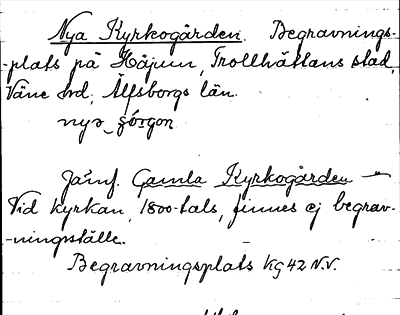 Nya Kyrkogården. Begravnings-
-plats på Håjum, Trollhättans stad,
Väne hd; Älfsborgs län.
nyə
Jämf. Gamla Kyrkogården -
Vid kyrkan, 1800-tals, finnes ej begrav-
-ningsställe.
Begravningsplats Kg 42 N.V.